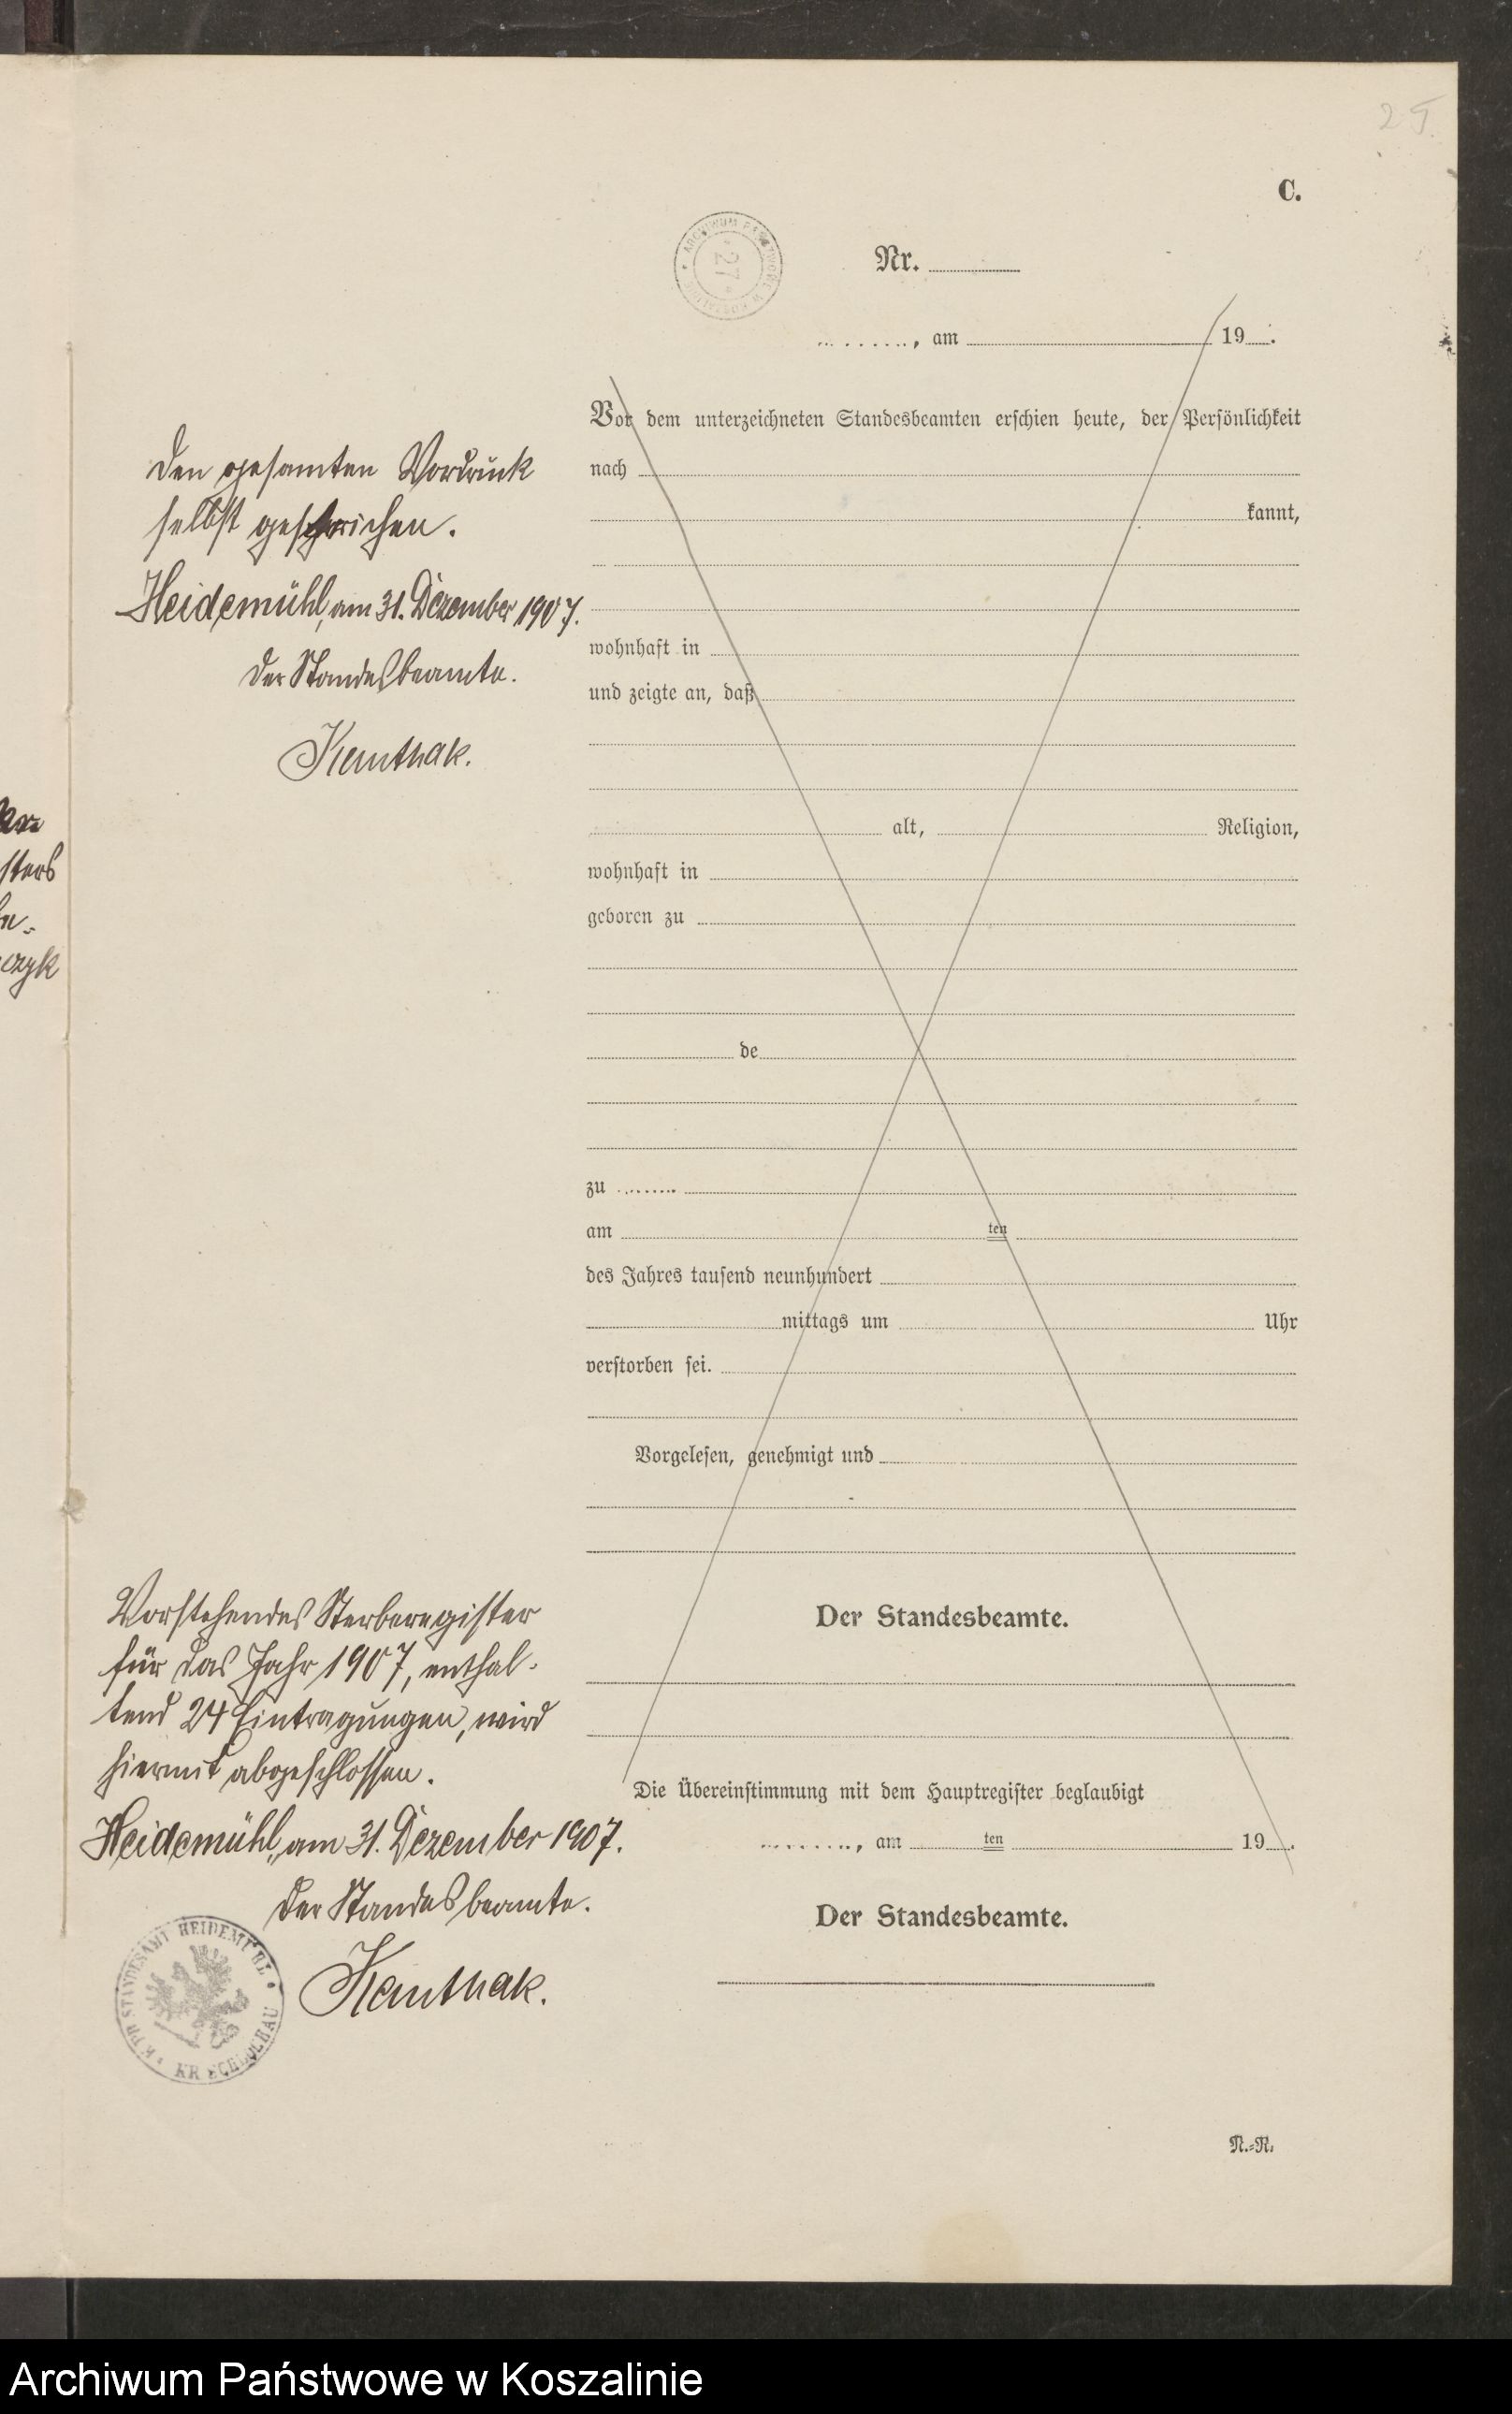 25.
C.
ARCHIWUM PAŃSTWOWE W KOSZALINIE
27
Nr.
, am 19 .
Vor dem unterzeichneten Standesbeamten erschien heute, der Persönlichkeit
nach
kannt,
wohnhaft in
und zeigte an, daß
alt, Religion,
wohnhaft in
geboren zu
de
zu
am ten
des Jahres tausend neunhundert
mittags um Uhr
verstorben sei.
Vorgelesen, genehmigt und
Der Standesbeamte.
Die Übereinstimmung mit dem Hauptregister beglaubigt
, am ten 19 .
Der Standesbeamte.
N.-R.
Den gesamten Vordruck
selbst gestrichen.
Heidemühl, am 31. Dezember 1907.
Der Standesbeamte.
Kauthak.
sters
czyk
Vorstehendes Sterberegister
für das Jahr 1907, enthal-
tend 24 Eintragungen, wird
hiermit abgeschlossen.
Heidemühl, am 31. Dezember 1907.
Der Standesbeamte.
Kauthak.
K. PR. STANDESAMT HEIDEMÜHL
KR. SCHLOCHAU
Archiwum Państwowe w Koszalinie